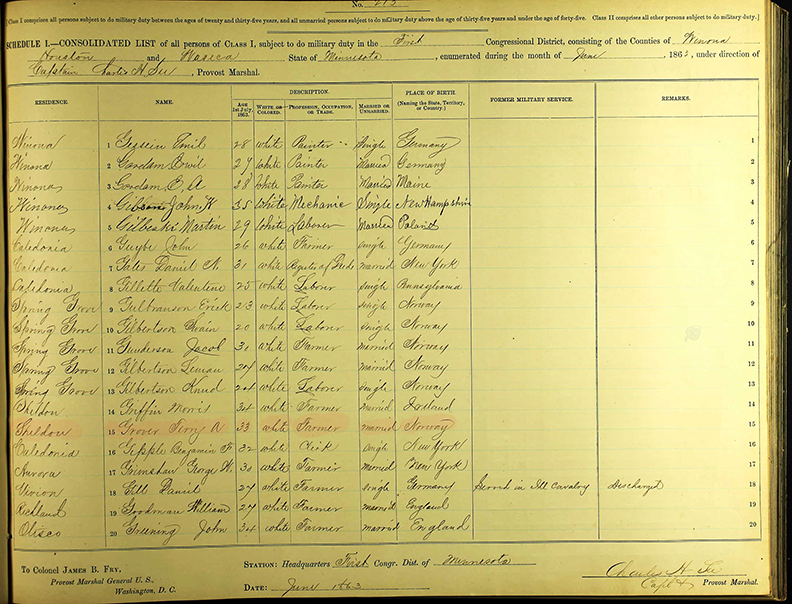 No.
[Class I comprises all persons subject to do military duty between the ages of twenty and thirty-five years, and all unmarried persons subject to do military duty above the age of thirty-five years and under the age of forty-five. Class II comprises all other persons subject to do military duty.]
SCHEDULE I.—CONSOLIDATED LIST of all persons of CLASS I, subject to do military duty in the First Congressional District, consisting of the Counties of Winona
Houston and Waseca State of Minnesota, enumerated during the month of June, 1863, under direction of
Captain Charles H. Lee, Provost Marshal.
DESCRIPTION.
RESIDENCE. NAME. AGE 1st July, 1863. WHITE OR COLORED. PROFESSION, OCCUPATION, OR TRADE. MARRIED OR UNMARRIED. PLACE OF BIRTH. (Naming the State, Territory, or Country.) FORMER MILITARY SERVICE. REMARKS.
Winona 1 Emil 28 white Painter Single Germany 1
Winona 2 27 White Painter Married Germany 2
Winona 3 28 White Painter Married Maine 3
Winona 4 Gibson John K 35 White Mechanic Single New Hampshire 4
Winona 5 Martin 29 White Laborer Married Poland 5
Caledonia 6 John 26 white Farmer single Germany 6
Caledonia 7 Gates Daniel N. 31 white Register of Deeds married New York 7
Caledonia 8 Gillette Valentine 25 white Laborer single Pennsylvania 8
Spring Grove 9 Gulbranson Erick 23 white Laborer single Norway 9
Spring Grove 10 Gilbertson Swain 20 white Laborer single Norway 10
Spring Grove 11 Gunderson Jacob 30 white Farmer married Norway 11
Spring Grove 12 Gilbertson 24 white Farmer married Norway 12
Spring Grove 13 Gilbertson Knud 24 white Laborer single Norway 13
Sheldon 14 Griffin Morris 34 white Farmer married 14
Sheldon 15 Grover Perry A 33 white Farmer married Norway 15
Caledonia 16 Gipple Benjamin F 32 white Clerk single New York 16
Aurora 17 Grimshaw George W. 30 white Farmer married New York 17
Vivion 18 Gill Daniel 27 white Farmer single Germany Served in Ill Cavalry Discharged 18
19 Goodman William 27 white Farmer married England 19
Otisco 20 Greening John 34 white Farmer married England 20
To Colonel JAMES B. FRY,
Provost Marshal General U. S.,
Washington, D. C.
STATION: Headquarters First Congr. Dist. of Minnesota
DATE: June 1863
Charles H. Lee
Capt & Provost Marshal.